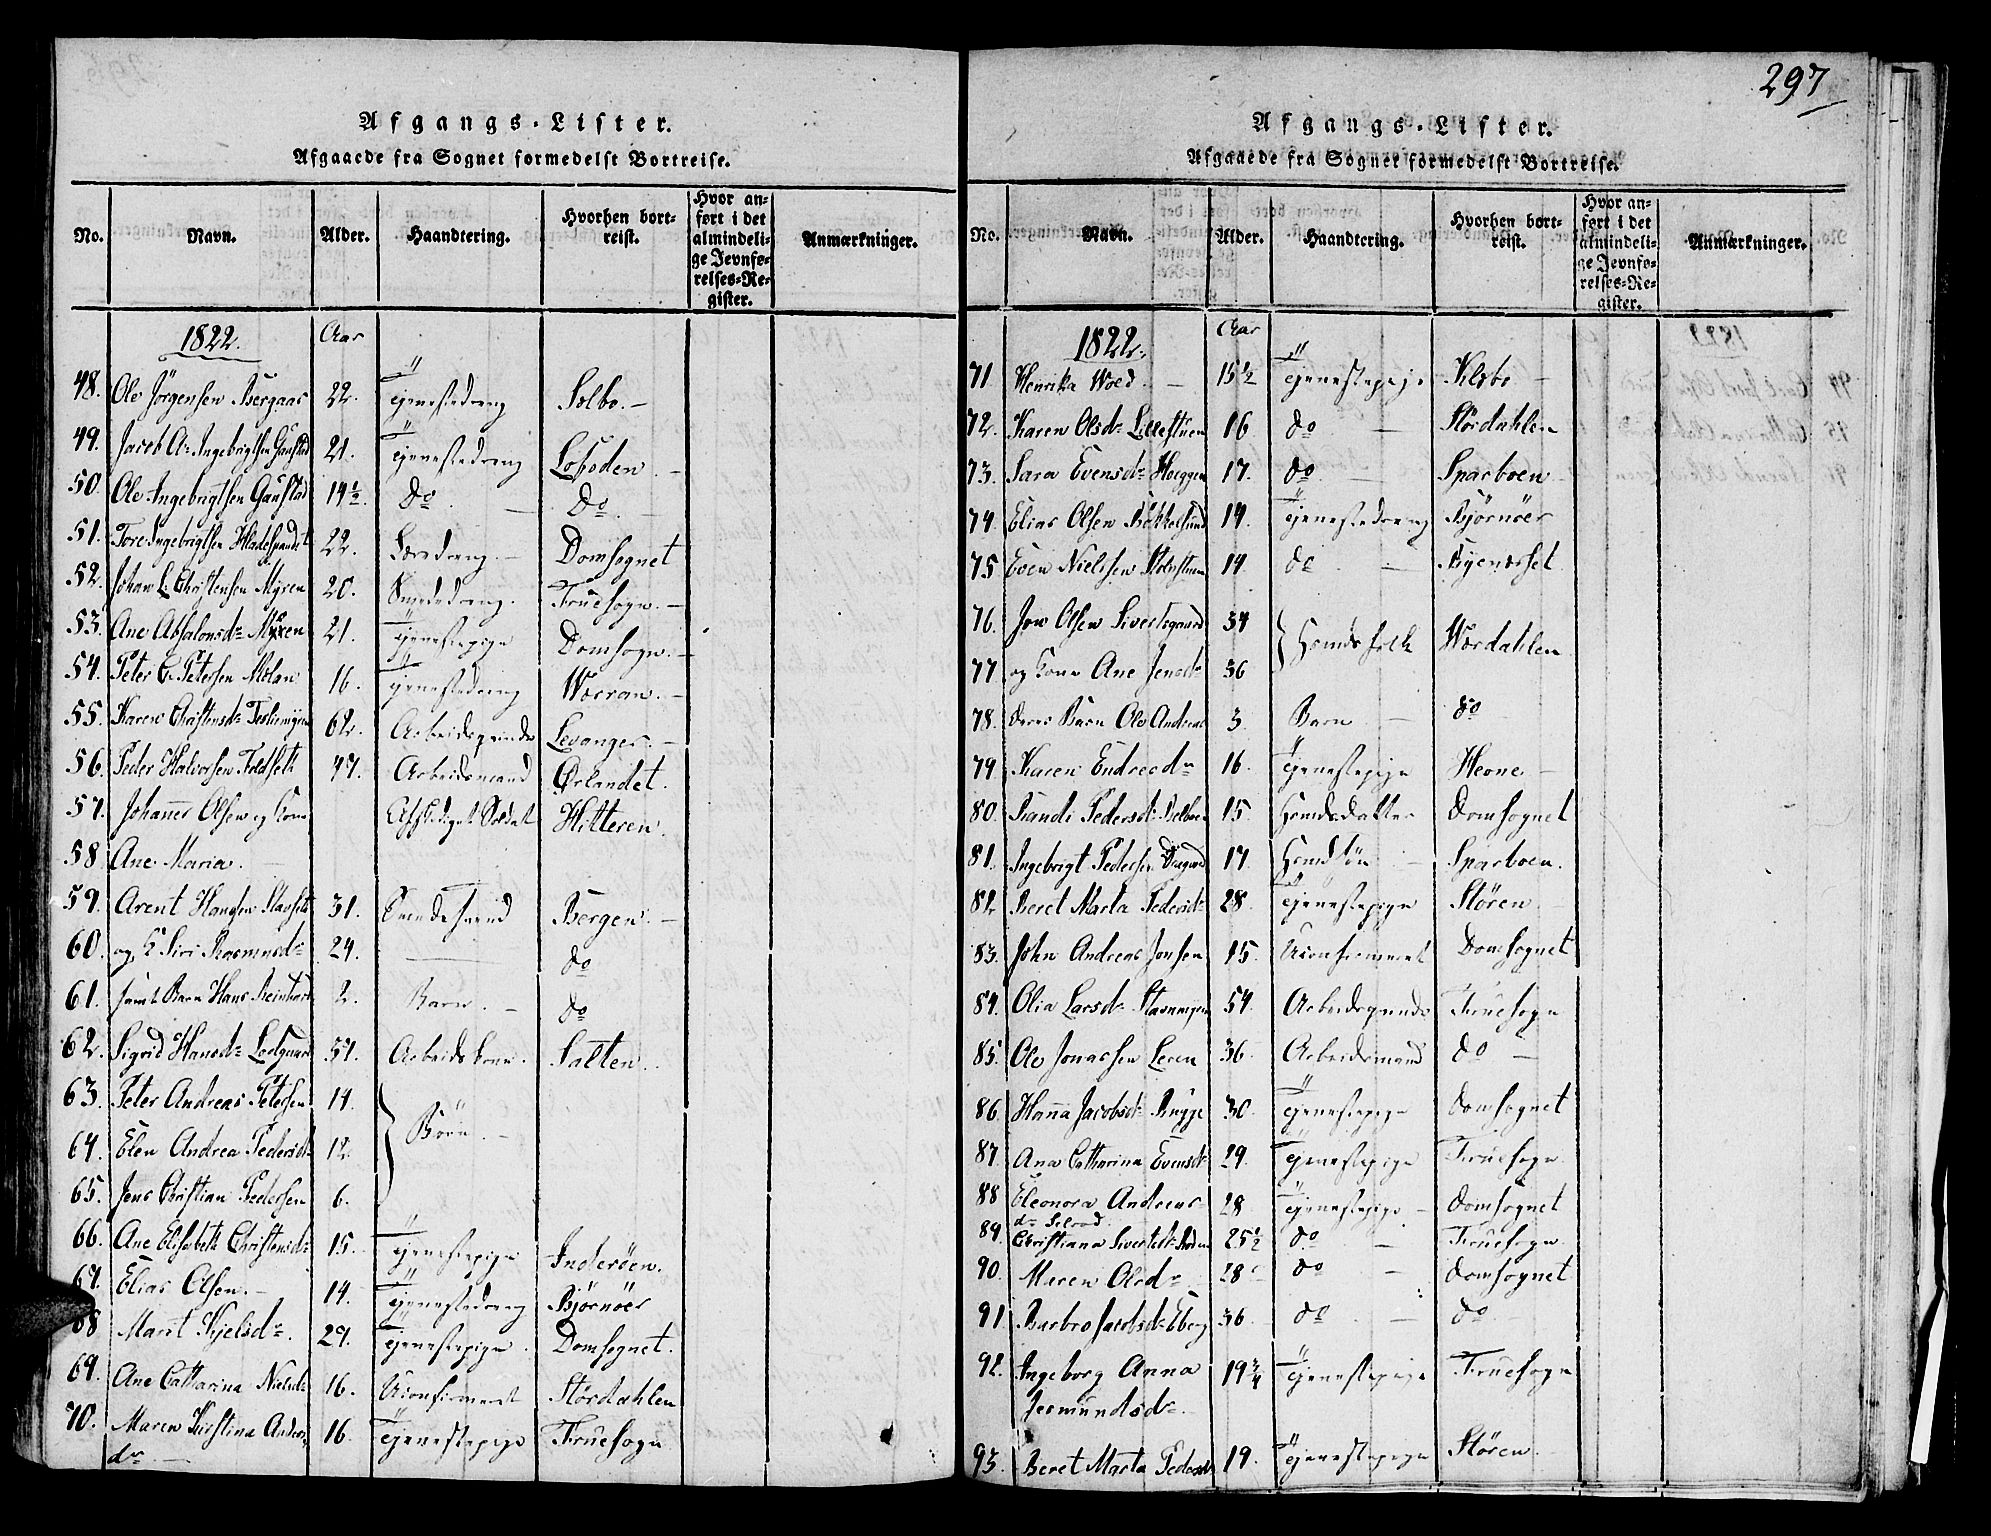 297
Afgangs-Lister.
Afgaaede fra Sognet formedelst Bortreise.
No. Navn. Alder. Haandtering. Hvorhen bortreist. Hvor anført i det almindelige Jevnførelses-Register. Anmærkninger.
1822. Aar
48. Ole Jörgensen Bergaas 22. Tjenestedreng Selbo.
49. Jacob A. Ingebrigtsen Gaustad 21. Tjenestedreng
50. Ole Ingebrigtsen Gaustad 14½ do do
51. Tore Ingebrigtsen 22. Læredreng Domsognet
52. Johan L. Christensen Myren 20. Smededreng. Fruesogn.
53. Ane Absalonsdr Myren 21. Tjenestepige Domsogn.
54. Peter Petersen Molan 16. Tjenestedreng Værran.
55. Karen Christensdr 62. Arbeidsqvinde Levanger.
56. Peder Halvorsen Foldseth 47. Arbeidsmand Ørlandet.
57. Johannes Olsen og Kone Afskediget Soldat Hitteren.
58. Ane Maria.
59. Arent Hansen 31. Svendesvend Bergen.
60. og K. Siri Rasmusdr 24. do
61. samt Barn Hans 2. Barn do
62. Sigrid Hansdr 57. Arbeidskone. Salten.
63. Peter Andreas Petersen 14
64. Elen Andrea Pedersdr 12 Börn.
65. Jens Christian Pedersen 6.
66. Ane Elisabeth Christensdr 15. Tjenestepige Inderöen.
67. Elias Olsen. 14. Tjenestedreng Björnöer
68 Marit Kjelsdr. 29. Tjenestepige Domsognet.
69. Ane Catharina Nielsdr 16. Uconfirmeret Stördahlen
70. Maren Kirstina Andersdr 16. Tjenestepige Fruesogn
Afgangs-Lister.
Afgaaede fra Sognet formedelst Bortreise.
No. Navn. Alder. Haandtering. Hvorhen bortreist. Hvor anført i det almindelige Jevnførelses-Register. Anmærkninger.
1822. Aar
71. Henrika Woed 15½ Tjenestepige Klebo
72. Karen Olsdr Lillestuen 16 do Stördahlen
73. Sara Evensdr 17. do Sparboen
74. Elias Olsen 14. Tjenestedreng Björnöer
75 Even Nielssen 14 do Byenæsset
76. Jon Olsen Sivertsgaard 34 Huusfolk Værdahlen
77 og Kone Ane Jensdr 36
78. deres Barn Ole Andreas 3 Barn do
79. Karen Endresdr 16. Tjenestepige Hevne
80. Randi Pedersdr 15. Domsognet
81. Ingebrigt Pedersen 17 Sparboen.
82 Beret Marta Pedersdr 28. Tjenestepige Stören
83. John Andreas Jonsen 15. Uconfirmeret Domsognet
84. Olia Larsdr 54. Arbeidsqvinde Fruesogn
85. Ole Jonassen Leren 36. Arbeidsmand do
86. Hanna Jacobsdr Rugge 30. Tjenestepige Domsognet
87. Ana Catharina Evensdr 29. Tjenestepige Fruesogn
88 Eleonora Andreas 28 Tjenestepige Domsognet
dr
89. Christiana Sivertsdr 25½ do Fruesogn
90. Maren Olsdr 28 do Domsognet
91. Barbro Jacobsdr Eberg 36 do do
92. Ingeborg Anna 19¾ Tjenestepige Fruesogn
Jermundsdr
93. Beret Marta Pedersdr 19. Tjenestepige Stören